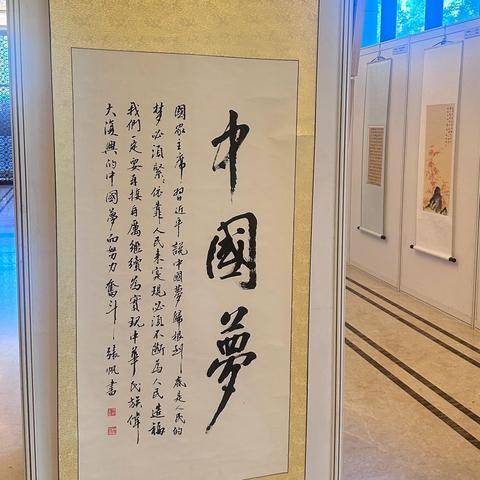 中國夢
國家主席習近平說中國夢歸根到底是人民的
夢必須緊緊依靠人民來實現必須不斷為人民造福
我們一定要再接再厲繼續為實現中華民族偉
大復興的中國夢而努力奮斗張帆書